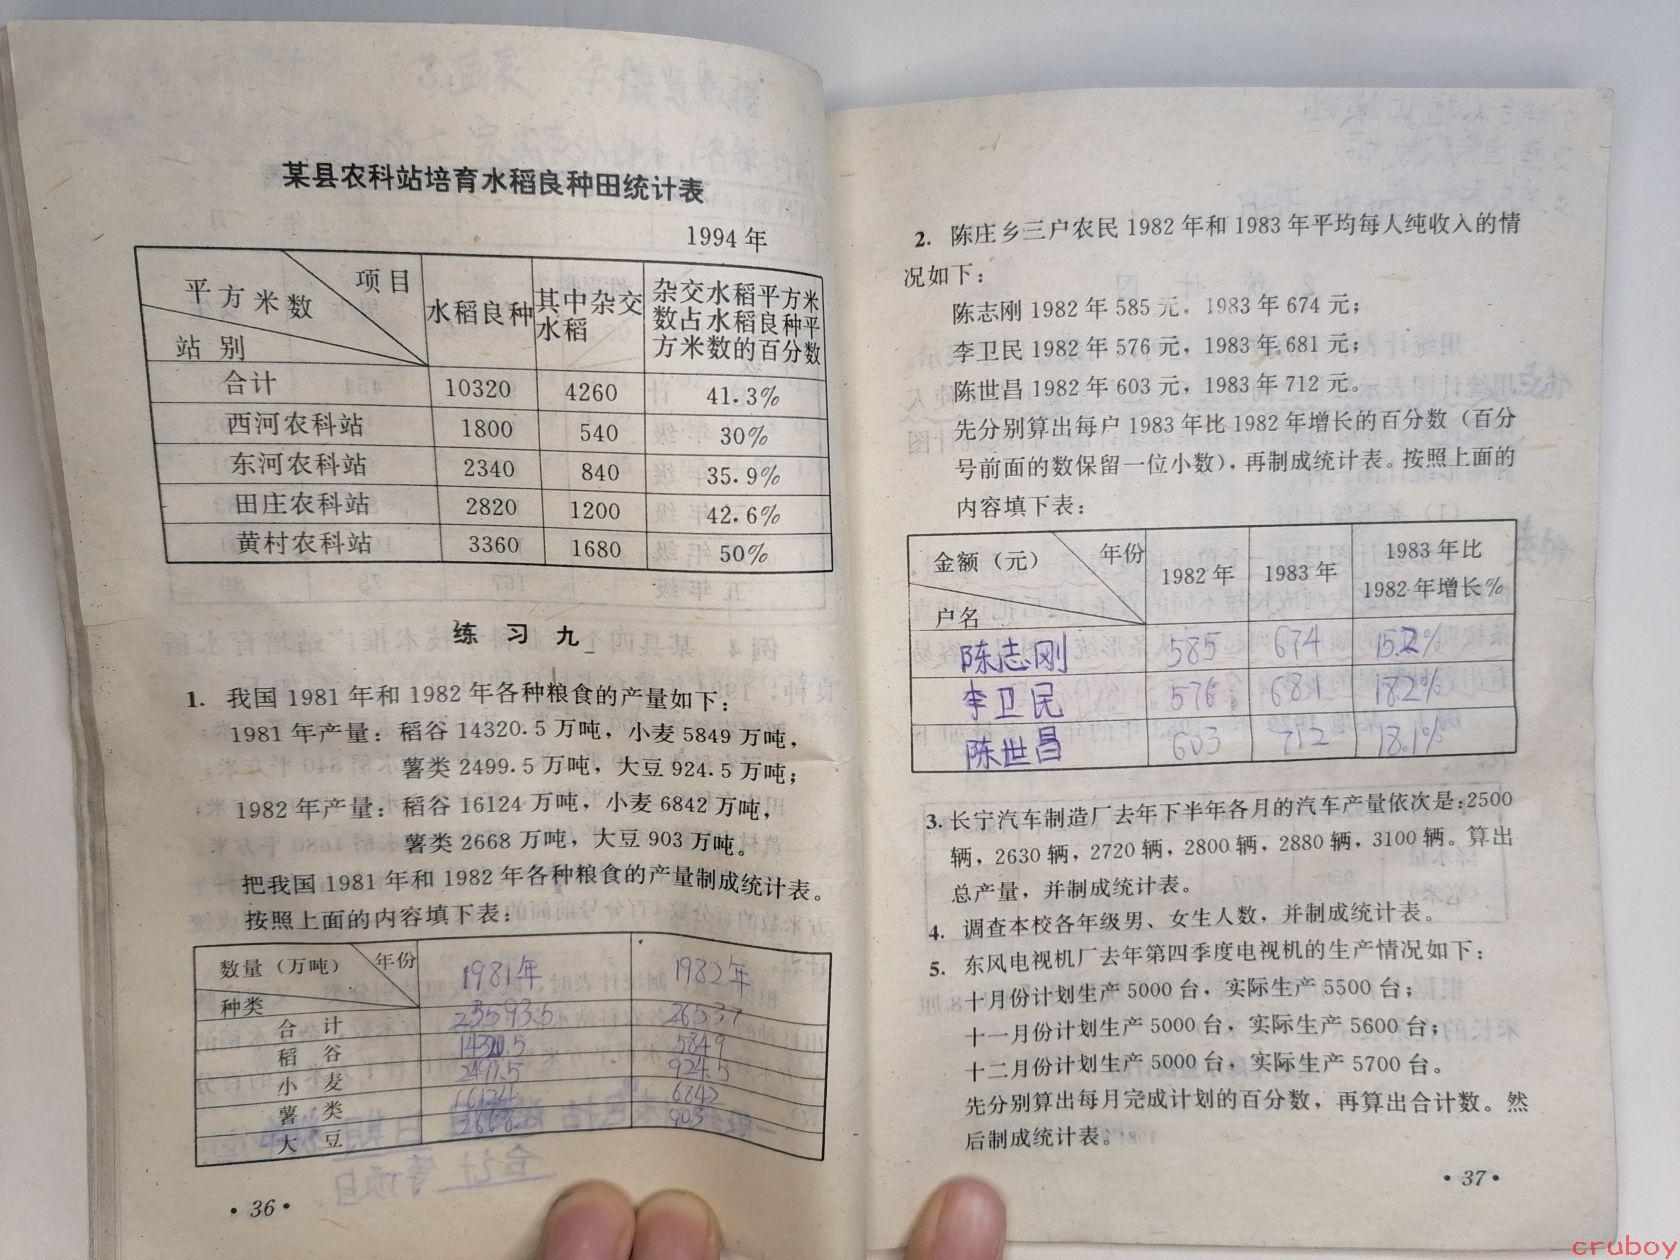 某县农科站培育水稻良种田统计表
1994 年
项目
平方米数
站 别
水稻良种
其中杂交
水稻
杂交水稻平方米
数占水稻良种平
方米数的百分数
合计 10320 4260 41.3%
西河农科站 1800 540 30%
东河农科站 2340 840 35.9%
田庄农科站 2820 1200 42.6%
黄村农科站 3360 1680 50%
练 习 九
1. 我国 1981 年和 1982 年各种粮食的产量如下：
1981 年产量：稻谷 14320.5 万吨，小麦 5849 万吨，
薯类 2499.5 万吨，大豆 924.5 万吨；
1982 年产量：稻谷 16124 万吨，小麦 6842 万吨，
薯类 2668 万吨，大豆 903 万吨。
把我国 1981 年和 1982 年各种粮食的产量制成统计表。
按照上面的内容填下表：
数量（万吨） 年份 1981年 1982年
种类
合 计 23593.5 26537
稻 谷 14320.5 5849
小 麦 924.5
薯 类 16124 6842
大 豆 2668 903
· 36 ·
2. 陈庄乡三户农民 1982 年和 1983 年平均每人纯收入的情
况如下：
陈志刚 1982 年 585 元，1983 年 674 元；
李卫民 1982 年 576 元，1983 年 681 元；
陈世昌 1982 年 603 元，1983 年 712 元。
先分别算出每户 1983 年比 1982 年增长的百分数（百分
号前面的数保留一位小数），再制成统计表。按照上面的
内容填下表：
金额（元） 年份
户名
1982 年
1983 年
1983 年比
1982 年增长%
陈志刚 585 674 15.2%
李卫民 576 681 18.2%
陈世昌 603 712 18.1%
3. 长宁汽车制造厂去年下半年各月的汽车产量依次是：2500
辆，2630 辆，2720 辆，2800 辆，2880 辆，3100 辆。算出
总产量，并制成统计表。
4. 调查本校各年级男、女生人数，并制成统计表。
5. 东风电视机厂去年第四季度电视机的生产情况如下：
十月份计划生产 5000 台，实际生产 5500 台；
十一月份计划生产 5000 台，实际生产 5600 台；
十二月份计划生产 5000 台，实际生产 5700 台。
先分别算出每月完成计划的百分数，再算出合计数。然
后制成统计表。
· 37 ·
cruboy